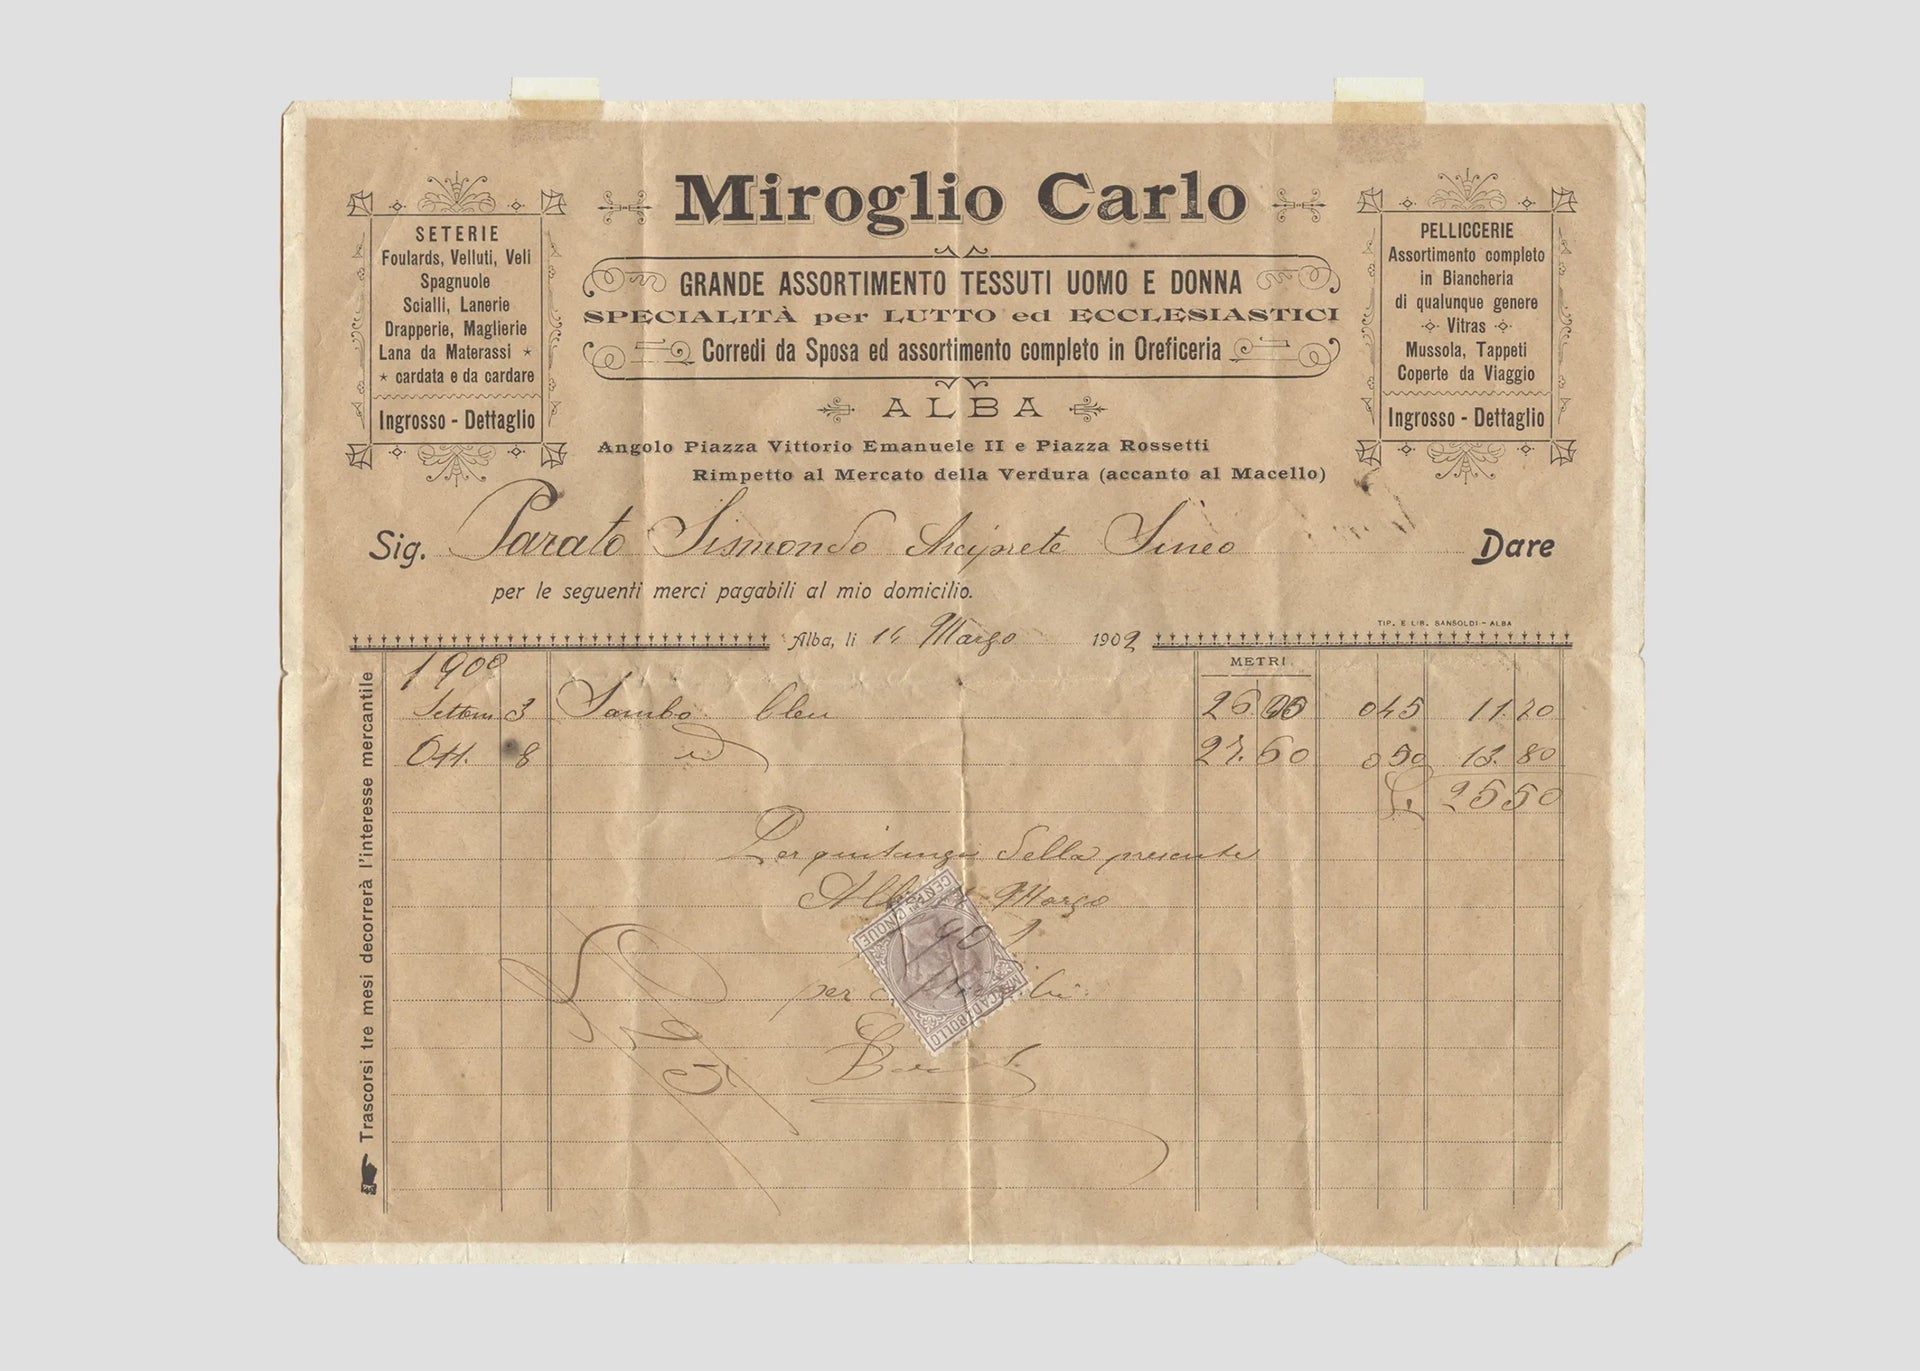 Miroglio Carlo
SETERIE
Foulards, Velluti, Veli
Spagnuole
Scialli, Lanerie
Drapperie, Maglierie
Lana da Materassi ⋆
⋆ cardata e da cardare
Ingrosso - Dettaglio
GRANDE ASSORTIMENTO TESSUTI UOMO E DONNA
SPECIALITÀ per LUTTO ed ECCLESIASTICI
Corredi da Sposa ed assortimento completo in Oreficeria
ALBA
Angolo Piazza Vittorio Emanuele II e Piazza Rossetti
Rimpetto al Mercato della Verdura (accanto al Macello)
PELLICCERIE
Assortimento completo
in Biancheria
di qualunque genere
Vitras
Mussola, Tappeti
Coperte da Viaggio
Ingrosso - Dettaglio
Sig. Parato Sismondo Arciprete Sineo Dare
per le seguenti merci pagabili al mio domicilio.
TIP. E LIB. SANSOLDI - ALBA
Alba, li 14 Marzo 1902
METRI
1900
3 bleu 045 11.20
Ott. 8 id 27.60 050 13.80
25 50
Per quitanza della presente
Marzo
per
MARCA DA BOLLO
CENT. CINQUE
Trascorsi tre mesi decorrerà l'interesse mercantile